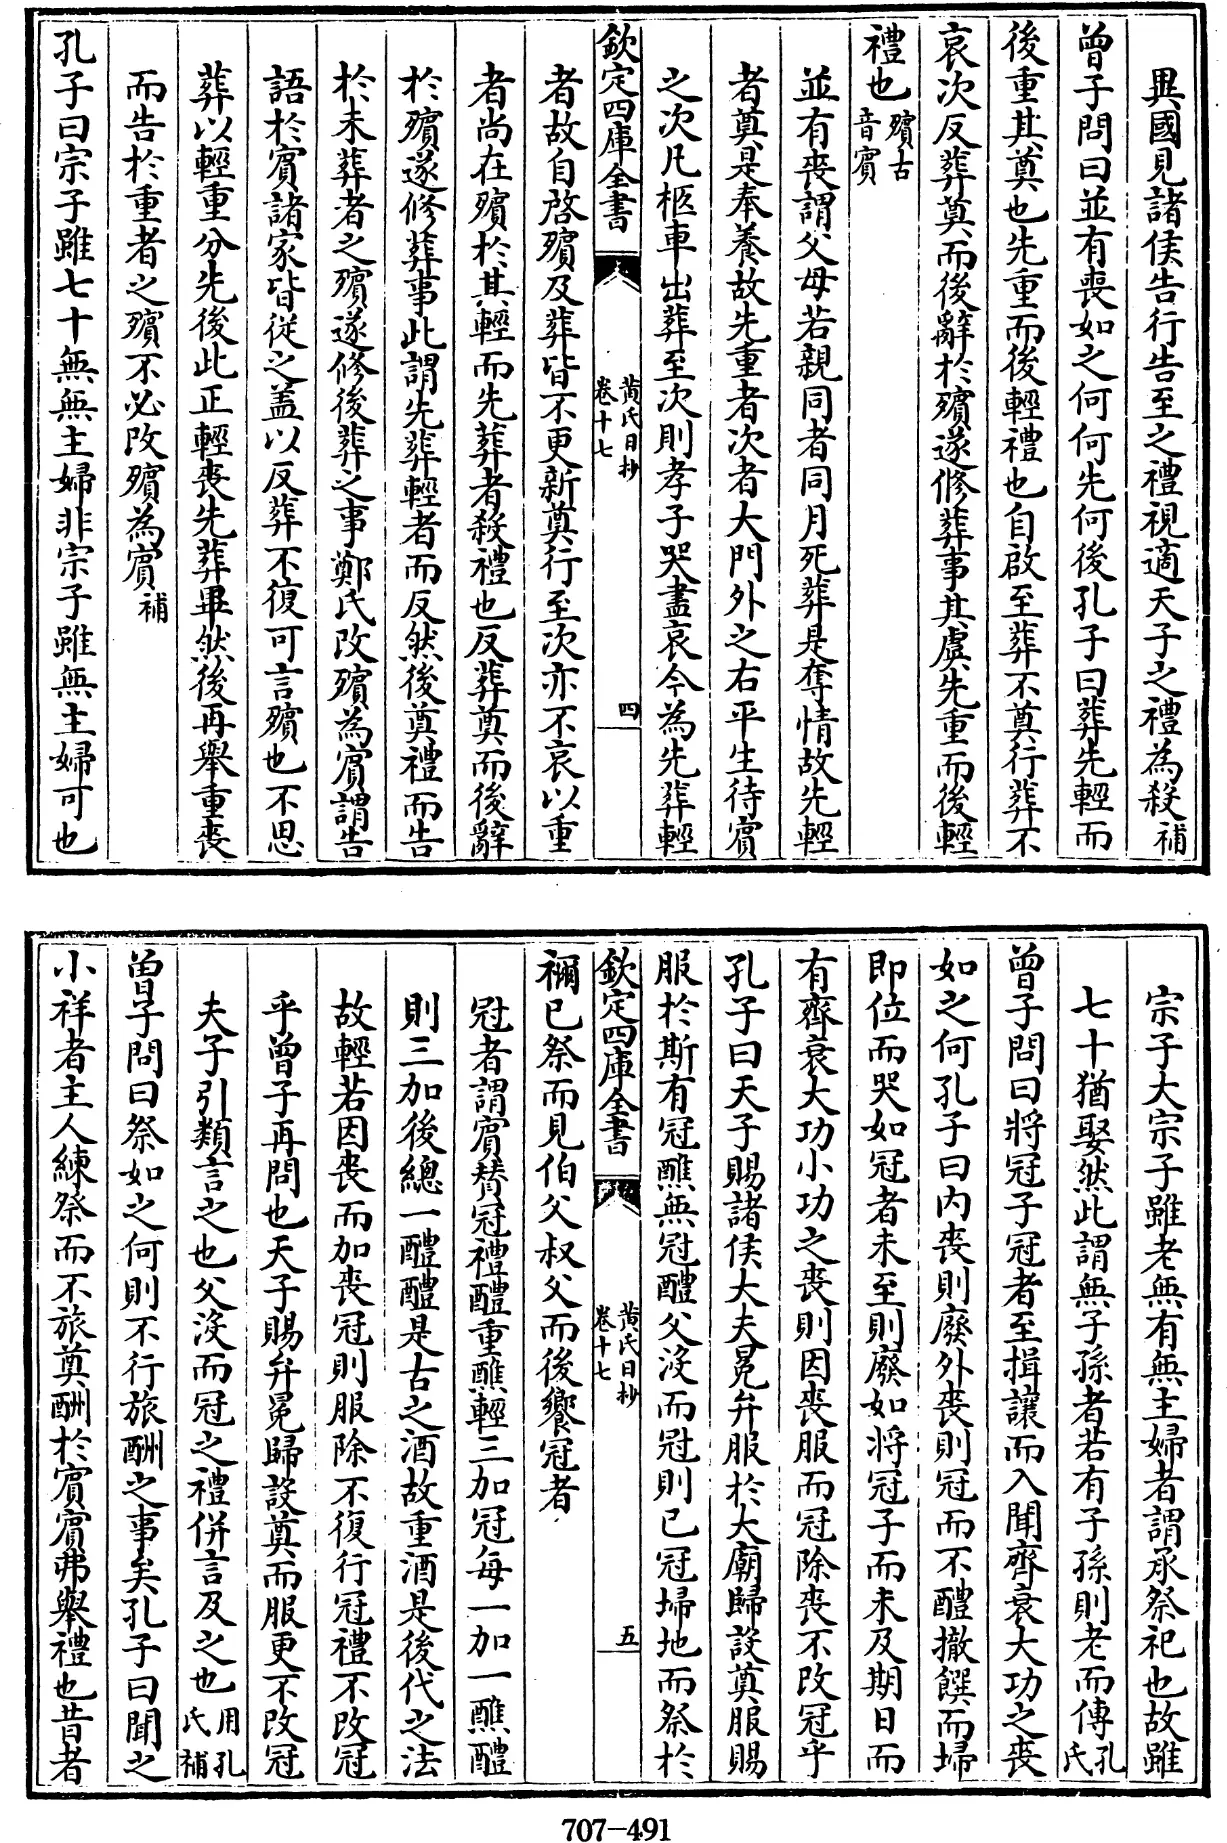 異國見諸侯告行告至之禮視適天子之禮為殺補
曾子問曰並有喪如之何何先何後孔子曰葬先輕而
後重其奠也先重而後輕禮也自啟至葬不奠行葬不
哀次反葬奠而後辭於殯遂修葬事其虞先重而後輕
禮也殯古音賓
並有喪謂父母若親同者同月死葬是奪情故先輕
者奠是奉養故先重者次者大門外之右平生待賓
之次凡柩車出葬至次則孝子哭盡哀今為先葬輕
欽定四庫全書
黄氏日抄
卷十七
四
者故自啓殯及葬皆不更新奠行至次亦不哀以重
者尚在殯於其輕而先葬者殺禮也反葬奠而後辭
於殯遂修葬事此謂先葬輕者而反然後奠禮而告
於未葬者之殯遂修後葬之事鄭氏改殯為賓謂告
語於賓諸家皆從之盖以反葬不復可言殯也不思
葬以輕重分先後此正輕喪先葬畢然後再舉重喪
而告於重者之殯不必改殯為賓補
孔子曰宗子雖七十無無主婦非宗子雖無主婦可也
宗子大宗子雖老無有無主婦者謂承祭祀也故雖
七十猶娶然此謂無子孫者若有子孫則老而傳孔氏
曾子問曰將冠子冠者至揖讓而入聞齊衰大功之喪
如之何孔子曰内喪則廢外喪則冠而不醴撤饌而埽
即位而哭如冠者未至則廢如將冠子而未及期日而
有齊衰大功小功之喪則因喪服而冠除喪不改冠乎
孔子曰天子賜諸侯大夫冕弁服於大廟歸設奠服賜
服於斯有冠醮無冠醴父沒而冠則已冠埽地而祭於
欽定四庫全書
黄氏日抄
卷十七
五
禰已祭而見伯父叔父而後饗冠者
冠者謂賓賛冠禮醴重醮輕三加冠每一加一醮醴
則三加後總一醴醴是古之酒故重酒是後代之法
故輕若因喪而加喪冠則服除不復行冠禮不改冠
乎曾子再問也天子賜弁冕歸設奠而服更不改冠
夫子引類言之也父沒而冠之禮併言及之也用孔氏補
曾子問曰祭如之何則不行旅酬之事矣孔子曰聞之
小祥者主人練祭而不旅奠酬於賓賓弗舉禮也昔者
707-491